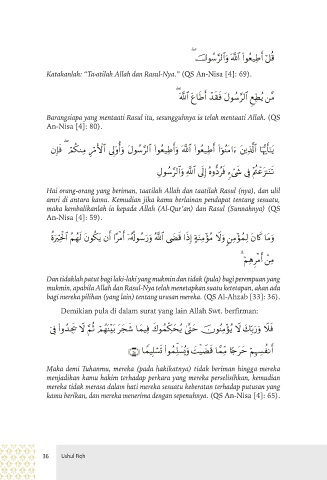 قُلْ أَطِيعُوا۟ ٱللَّهَ وَٱلرَّسُولَ ۖ
Katakanlah: "Ta-atilah Allah dan Rasul-Nya." (QS An-Nisa [4]: 69).
مَّن يُطِعِ ٱلرَّسُولَ فَقَدْ أَطَاعَ ٱللَّهَ ۖ
Barangsiapa yang mentaati Rasul itu, sesungguhnya ia telah mentaati Allah. (QS
An-Nisa [4]: 80).
يَٰٓأَيُّهَا ٱلَّذِينَ ءَامَنُوٓا۟ أَطِيعُوا۟ ٱللَّهَ وَأَطِيعُوا۟ ٱلرَّسُولَ وَأُو۟لِى ٱلْأَمْرِ مِنكُمْ ۖ فَإِن
تَنَٰزَعْتُمْ فِى شَىْءٍ فَرُدُّوهُ إِلَى ٱللَّهِ وَٱلرَّسُولِ
Hai orang-orang yang beriman, taatilah Allah dan taatilah Rasul (nya), dan ulil
amri di antara kamu. Kemudian jika kamu berlainan pendapat tentang sesuatu,
maka kembalikanlah ia kepada Allah (Al-Qur'an) dan Rasul (Sunnahnya) (QS
An-Nisa [4]: 59).
وَمَا كَانَ لِمُؤْمِنٍ وَلَا مُؤْمِنَةٍ إِذَا قَضَى ٱللَّهُ وَرَسُولُهُۥٓ أَمْرًا أَن يَكُونَ لَهُمُ ٱلْخِيَرَةُ
مِنْ أَمْرِهِمْ ۗ
Dan tidaklah patut bagi laki-laki yang mukmin dan tidak (pula) bagi perempuan yang
mukmin, apabila Allah dan Rasul-Nya telah menetapkan suatu ketetapan, akan ada
bagi mereka pilihan (yang lain) tentang urusan mereka. (QS Al-Ahzab [33]: 36).
Demikian pula di dalam surat yang lain Allah Swt. berfirman:
فَلَا وَرَبِّكَ لَا يُؤْمِنُونَ حَتَّىٰ يُحَكِّمُوكَ فِيمَا شَجَرَ بَيْنَهُمْ ثُمَّ لَا يَجِدُوا۟ فِىٓ
أَنفُسِهِمْ حَرَجًا مِّمَّا قَضَيْتَ وَيُسَلِّمُوا۟ تَسْلِيمًا
Maka demi Tuhanmu, mereka (pada hakikatnya) tidak beriman hingga mereka
menjadikan kamu hakim terhadap perkara yang mereka perselisihkan, kemudian
mereka tidak merasa dalam hati mereka sesuatu keberatan terhadap putusan yang
kamu berikan, dan mereka menerima dengan sepenuhnya. (QS An-Nisa [4]: 65).
36 Ushul Fiqh